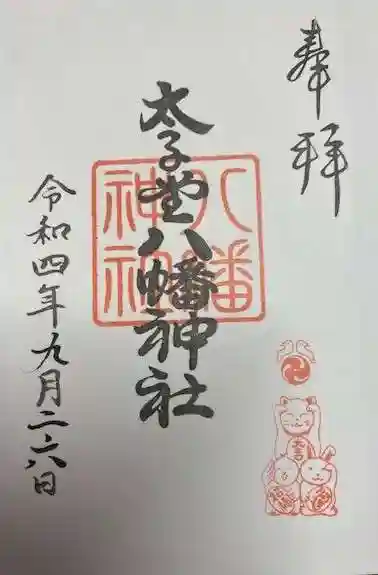 奉拝
太子堂八幡神社
八幡
神社
令和四年九月二十六日